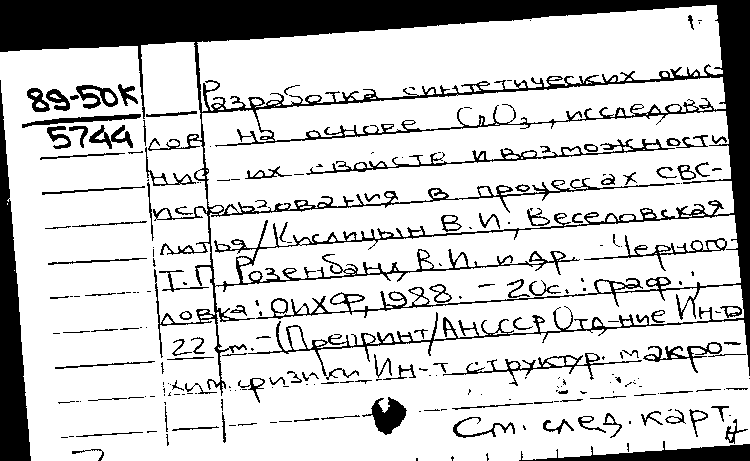 89-50К
5744
Разработка синтетических окис-
лов на основе CrO3, исследова-
ние их свойств и возможности
использования в процессах СВС-
литья/Кислицын В.И., Веселовская
Т.П., Розенбанд В.И. и др. Черного-
ловка: ОИХФ, 1988. - 20с.: граф.;
22 см. - (Препринт/АН СССР, Отд-ние Ин-та
хим. физики, Ин-т структур. макро-
См. след. карт.